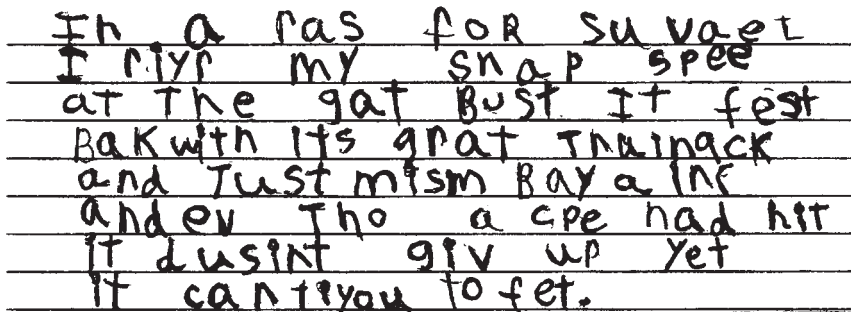 In a ras for suvael
I riyr my snap spee
at The gat Bust It fest
Bak with its grat Thuinack
and Just mism Bay a inf
and ev Tho a cpe had hit
it dusint giv up yet
it cantiyou to fet.